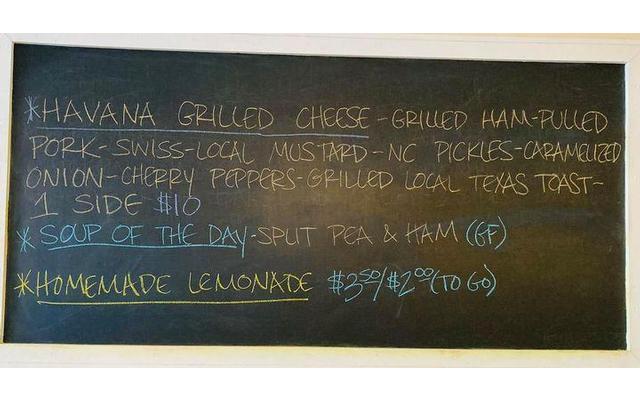 *HAVANA GRILLED CHEESE-GRILLED HAM-PULLED
PORK-SWISS-LOCAL MUSTARD-NC PICKLES-CARAMELIZED
ONION-CHERRY PEPPERS-GRILLED LOCAL TEXAS TOAST-
1 SIDE $10
* SOUP OF THE DAY-SPLIT PEA & HAM (GF)
*HOMEMADE LEMONADE $3.50/$2.00 (TO GO)